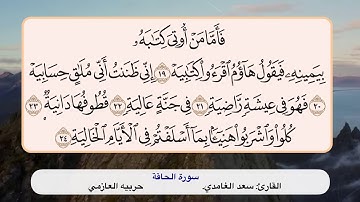 فَأَمَّا مَنْ أُوتِىَ كِتَٰبَهُۥ
بِيَمِينِهِۦ فَيَقُولُ هَآؤُمُ ٱقْرَءُوا۟ كِتَٰبِيَهْ ١٩ إِنِّى ظَنَنتُ أَنِّى مُلَٰقٍ حِسَابِيَهْ
٢٠ فَهُوَ فِى عِيشَةٍ رَّاضِيَةٍ ٢١ فِى جَنَّةٍ عَالِيَةٍ ٢٢ قُطُوفُهَا دَانِيَةٌ ٢٣
كُلُوا۟ وَٱشْرَبُوا۟ هَنِيٓـًٔۢا بِمَآ أَسْلَفْتُمْ فِى ٱلْأَيَّامِ ٱلْخَالِيَةِ ٢٤
سورة الحاقة
القارئ: سعد الغامدي. حربيه العازمي